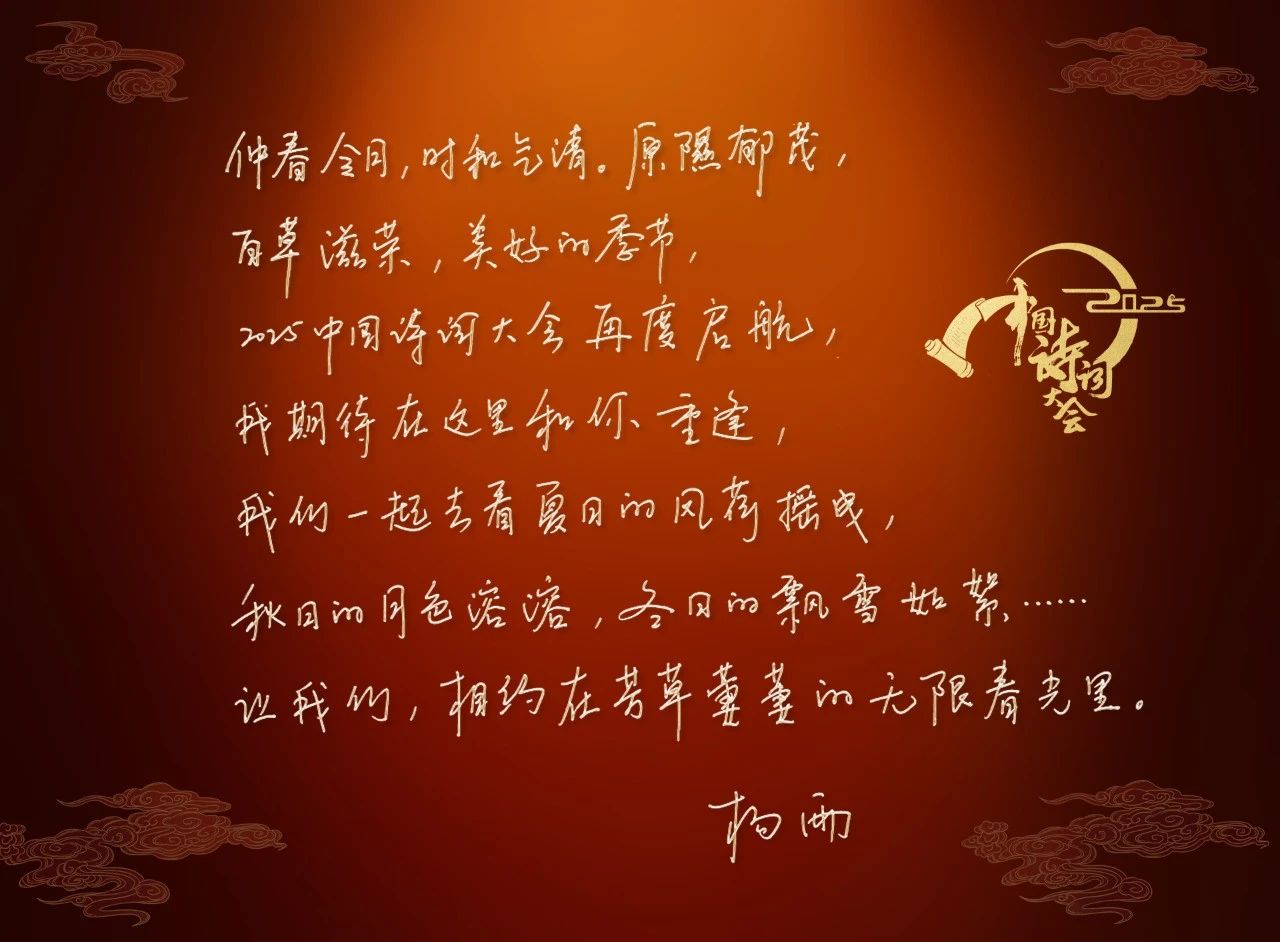 仲春令月，时和气清。原隰郁茂，
百草滋荣，美好的季节，
2025中国诗词大会再度启航，
我期待在这里和你重逢，
我们一起去看夏日的风荷摇曳，
秋日的月色溶溶，冬日的飘雪如絮……
让我们，相约在芳草萋萋的无限春光里。
杨雨
2025
中国
诗词
大会